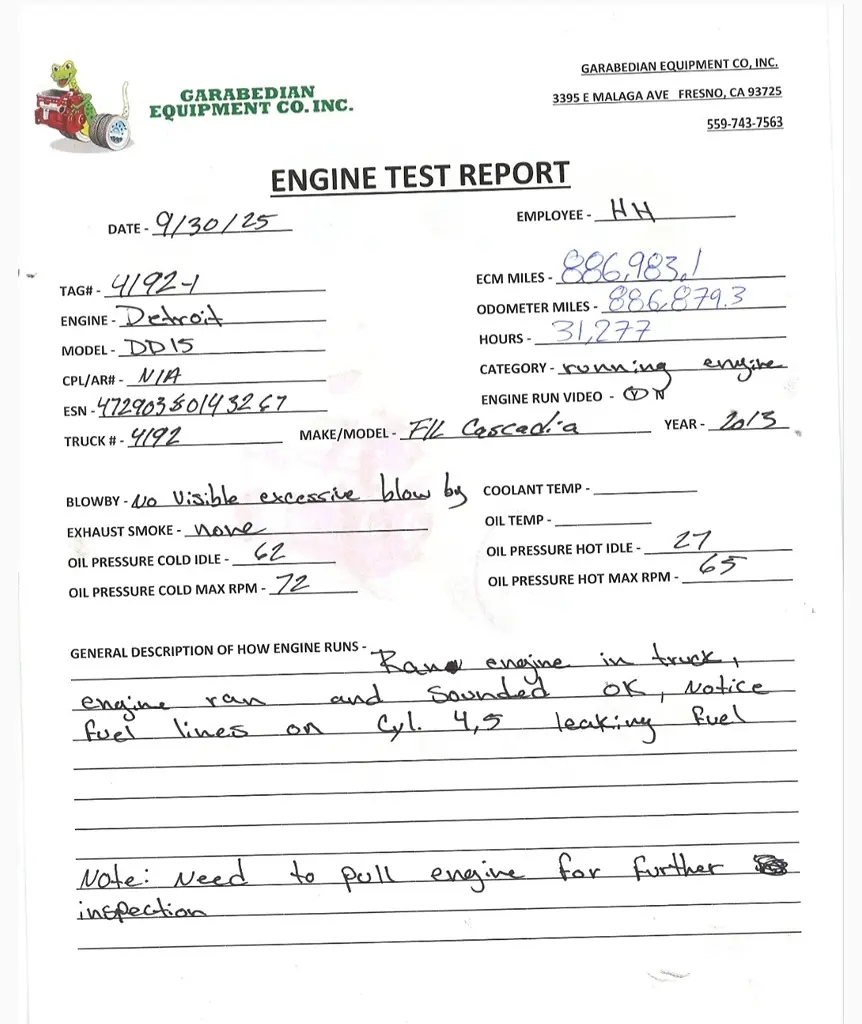 GARABEDIAN
EQUIPMENT CO. INC.
GARABEDIAN EQUIPMENT CO, INC.
3395 E MALAGA AVE FRESNO, CA 93725
559-743-7563
ENGINE TEST REPORT
DATE - 9/30/25
EMPLOYEE - HH
TAG# - 4192-1
ECM MILES - 886,983.1
ENGINE - Detroit
ODOMETER MILES - 886,879.3
MODEL - DD15
HOURS - 31,277
CPL/AR# - N/A
CATEGORY - running engine
ESN - 472903S0143267
ENGINE RUN VIDEO - Y N
TRUCK # - 4192
MAKE/MODEL - F/L Cascadia
YEAR - 2013
BLOWBY - No Visible excessive blow by
COOLANT TEMP -
EXHAUST SMOKE - none
OIL TEMP -
OIL PRESSURE COLD IDLE - 62
OIL PRESSURE HOT IDLE - 27
OIL PRESSURE COLD MAX RPM - 72
OIL PRESSURE HOT MAX RPM - 65
GENERAL DESCRIPTION OF HOW ENGINE RUNS - Ran engine in truck,
engine ran and sounded OK, Notice
fuel lines on Cyl. 4,5 leaking fuel
Note: Need to pull engine for further
inspection